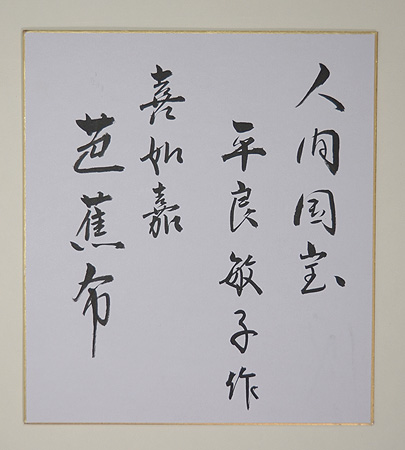 人間国宝
平良敏子作
喜如嘉
芭蕉布